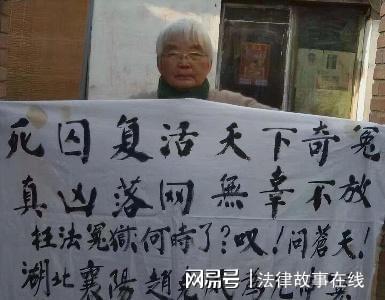 死囚复活天下奇冤
真凶落网無辜不放
枉法冤獄何時了?叹!問蒼天!
湖北襄陽趙
网易号 | 法律故事在线